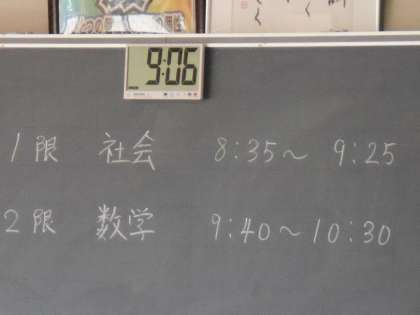 9:06
1限 社会 8:35～ 9:25
2限 数学 9:40～10:30